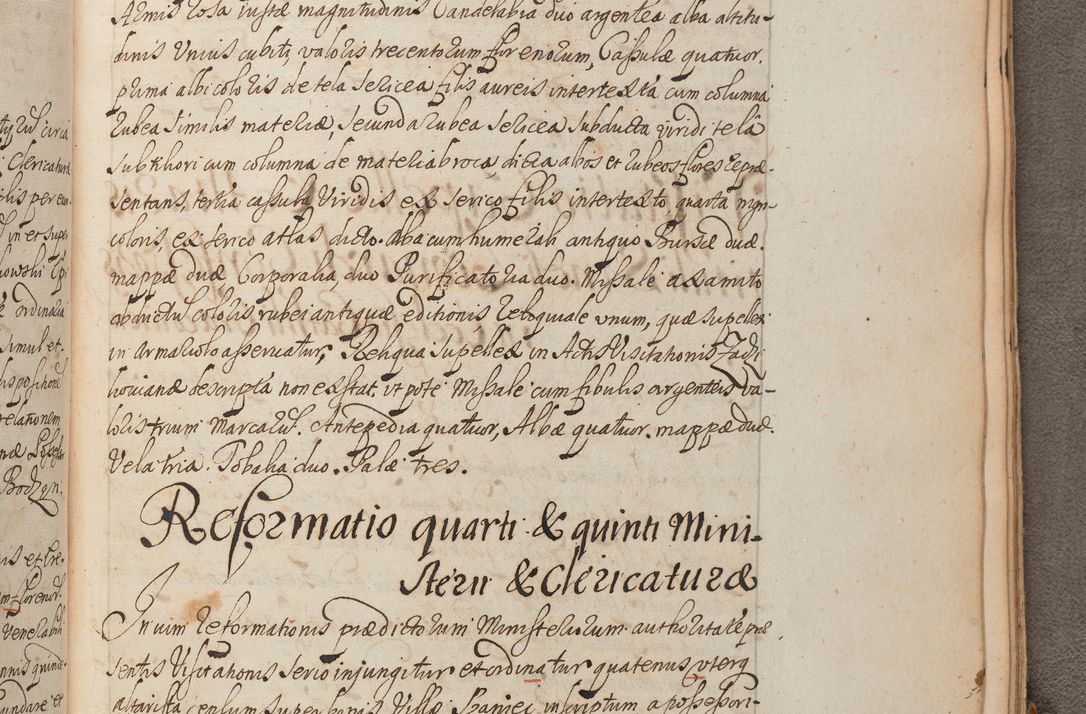 Armis Rosa iustæ magnitudinis Candelabra duo argentea alba altitu-
dinis Unius cubiti, valoris trecentorum florenorum, Casulæ quatuor.
prima albi coloris de tela sericea filis aureis intertexta cum columna
rubea similis materiæ, secunda rubea sericea subducta viridi telâ
subtkhori cum columna de materia broca dicta albos et rubeos flores repræ-
sentans, tertia casula Viridis ex serico filis intertexto quarta nigri
coloris, ex serico atlas dicto. Alba cum humerali antiquo Bursæ duæ.
mappæ duæ Corporalia, duo Purificatoria duo. Missale axamito
obductu coloris rubei antiquæ editionis Reliquiale unum, quæ supellex
in armariolo asservatur, Reliqua supellex in Actis Visitationis Zadzi
kovianæ descripta non exstat. ut pote Missale cum fibulis argenteis va-
loris trium Marcarū. Antepedia quatuor, Albæ quatuor. mappæ duæ.
Vela tria. Tobalia duo. Palæ tres.
Reformatio quarti & quinti Mini-
sterii & Clericaturæ
In vim reformationis prædictorum Ministeriorum authoritate præ
sentis Visitationis serio injungitur et ordinatur quatenus uterq
altarista censum super bonis Villæ Szaniec inscriptum a possessori-
circa
Clericatura
in et super
ordinaria
simul et.
dispositione
relationem
Bodzyn.
Venerabili